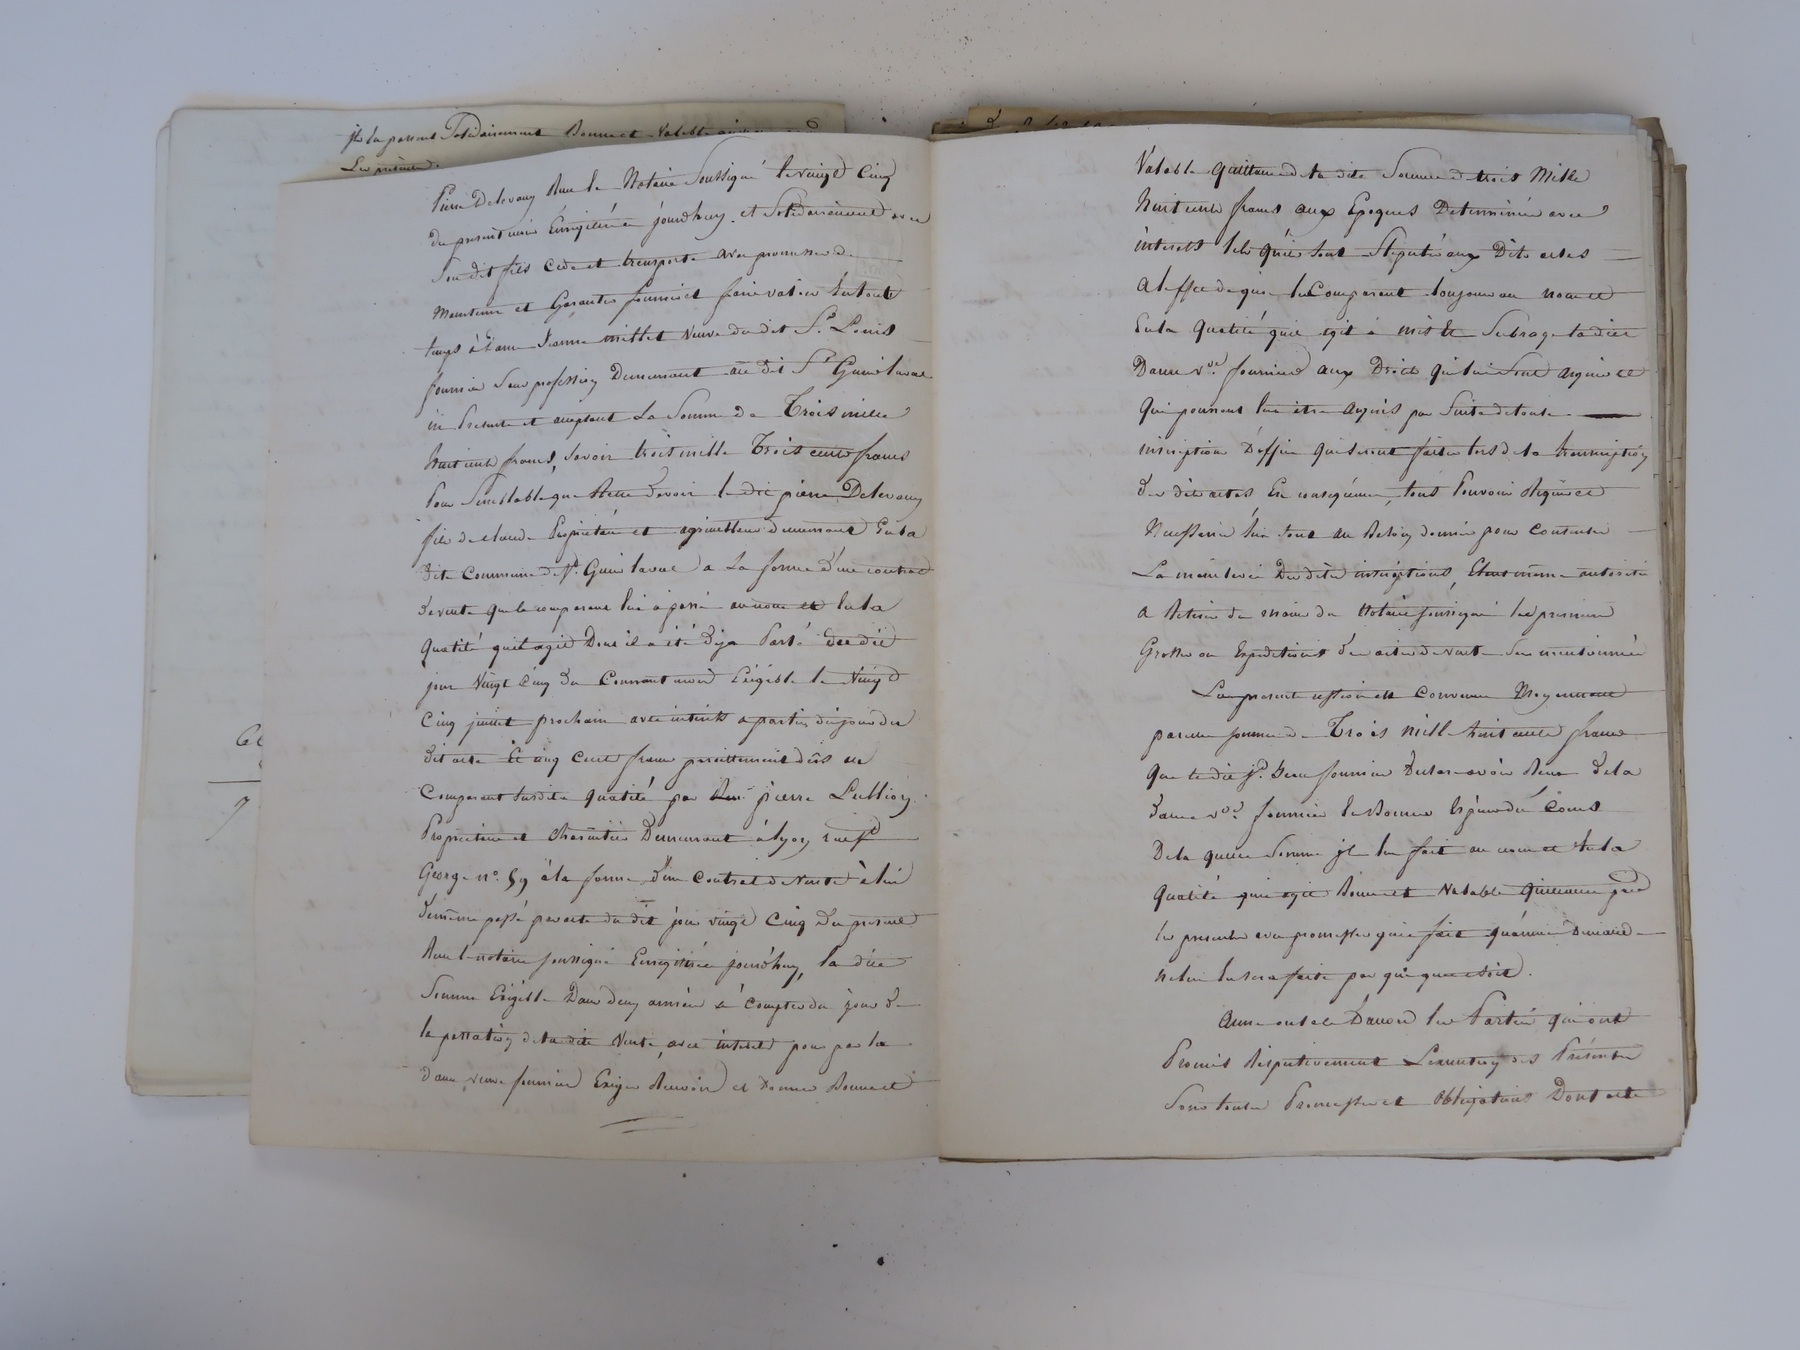 ils la passent Solidairement Bonne et Valable
Les présentes
Pierre Delevaux Recu le Notaire Soussigné le vingt Cinq
du present mois Enregistrée jourdhuy. et Solidairement avec
Son dit fils Cède et transporte avec promesse de
Maintenir et Garantir fournir et faire valoir en toute
temps à Dame Jeanne millet Veuve du dit Sr. Louis
fournier Sans profession Demeurant au dit St Genis laval
ici Presente et acceptant La Somme de Trois mille
huit cents francs, Savoir trois mille Trois cents francs
Pour Semblable que reste devoir le dit pierre Delevaux
fils de claude Propriétaire et agriculteur demeurant En la
dite Commune de St. Genis laval a La forme d'une contrat
de vente que le comparant lui a passé au nom et En la
Qualité qu'il agit Dont il a été Deja Parlé du dit
jour Vingt Cinq du Courant mois Exigible le Vingt
Cinq juillet prochain avec intérêts a partir du jour du
dit acte et cinq cents francs pareillement dûs au
Comparant Susdite qualité par pierre Lullion
Propriétaire et Charcutier Demeurant à lyon rue St
George n°. 59 à la forme d'un Contrat de Vente à lui
demême passé par acte du dit jour vingt Cinq du present
Recu le notaire soussigné Enregistrée jourdhuy, la dite
Somme Exigible Dans deux années à Compter du jour de
la passation de la dite Vente, avec intérêts pour par la
dame veuve fournier Exiger Recevoir et Donner Bonne et
Valable Quittance de la dite Somme de trois Mille
huit cents francs aux Epoques Determinées avec
intérêts tels qu'ils Sont Stipulés aux Dits actes
A l'effet de quoi le Comparant toujours au nom et
En la Qualité qu'il agit à mis et Subroge la dite
Dame ve. fournier aux Droits qui lui Sont acquis et
Qui pourront lui être acquis par Suite de toute
inscription D'office qui Seront faites lors de la transcription
des dits actes En conséquence, tous Pouvoir Requis et
Nécessaire lui Sont au Besoin donnés pour Consentir
La mainlevée Des dites inscriptions, Etant même autorisée
a Retirer des mains du Notaire soussigné les premières
Grosses ou Expeditions des actes de vente Sus mentionnés
La présente cession est Convenue Moyennant
pareille somme de Trois mille huit cents francs
Que le dit Sr. fournier Declare avoir Recu de la
dame ve. fournier En Bonnes Espèces du Cours
De la quelle Somme il lui fait au nom et En la
Qualité qu'il agit Bonne et Valable Quittance par
les presentes avec promesse qu'il fait qu'aucune Demande
ne lui En sera faite par qui que ce soit.
Ainsi convenu D'accord les Parties qui ont
Promis Respectivement L'exécution des Présentes
Sous toutes Promesses et Obligations Dont acte